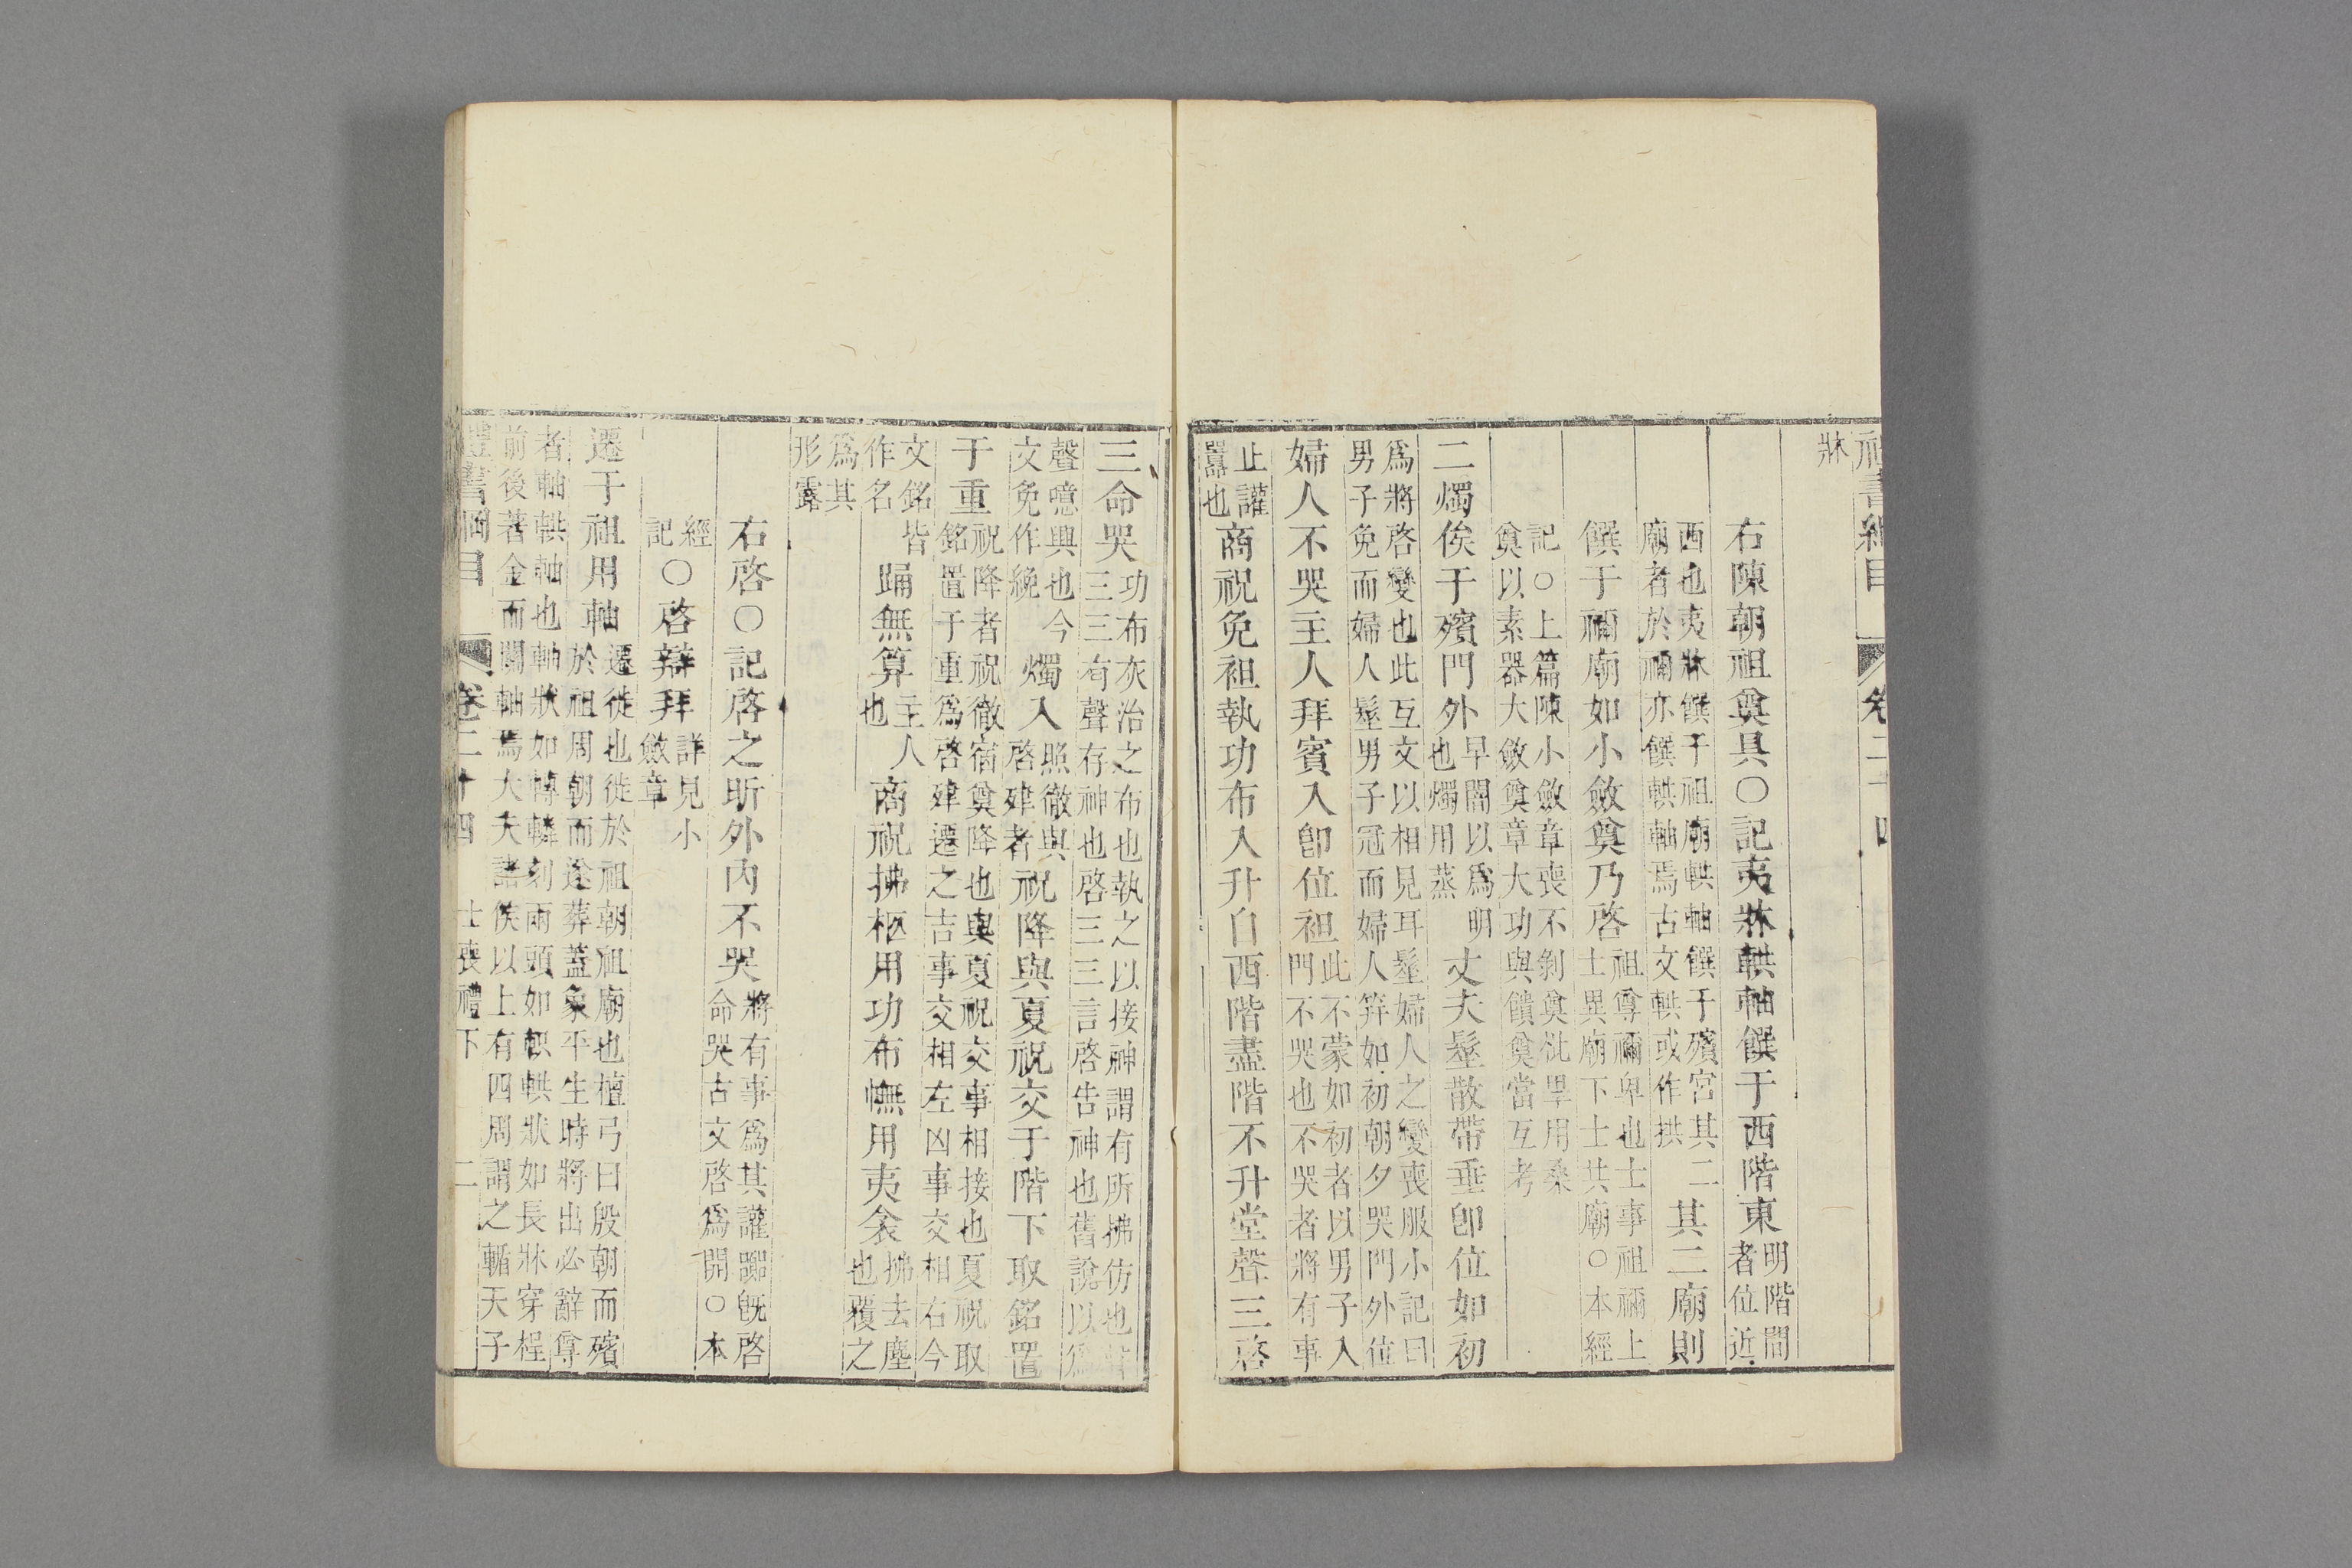 牀
右陳朝祖奠具○記夷牀輁軸饌于西階東明階間者位近
西也夷牀饌于祖廟輁軸饌于殯宮其二廟者於禰亦饌輁軸焉古文輁或作拱其二廟則
饌于禰廟如小斂奠乃啓祖尊禰卑也士事祖禰上士異廟下士共廟○本經
記○上篇陳小斂章喪不剝奠柶畢用桑奠以素器大斂奠章大功與饋奠當互考
二燭俟于殯門外早闇以爲明也燭用蒸丈夫髽散帶垂卽位如初
爲將啓變也此互文以相見耳髽婦人之變喪服小記曰男子免而婦人髽男子冠而婦人笄如初朝夕哭門外位
婦人不哭主人拜賓入卽位袒此不蒙如初者以男子入門不哭也不哭者將有事
止讙囂也商祝免袒執功布入升自西階盡階不升堂聲三啓
三命哭功布灰治之布也執之以接神謂有所拂仿也三三有聲存神也啓三三言啓告神也舊說以爲
聲噫興也今文免作絻燭入照徹與啓建者祝降與夏祝交于階下取銘置
于重祝降者祝徹宿奠降也與夏祝交事相接也夏祝取銘置于重爲啓建遷之吉事交相左凶事交相右今
文銘皆作名踊無算主人也商祝拂柩用功布幠用夷衾拂去塵也覆之
爲其形露
右啓○記啓之昕外內不哭將有事爲其讙躁旣啓命哭古文啓爲開○本
經記○啓辯拜詳見小斂章
遷于祖用軸遷徙也徙於祖朝祖廟也檀弓曰殷朝而殯於祖周朝而遂葬蓋象平生時將出必辭尊
者軸輁軸也軸狀如轉轔刻兩頭如軹輁狀如長牀穿桯前後著金而關軸焉大夫諸侯以上有四周謂之輴天子
書綱目　卷二十四　士喪禮下　二